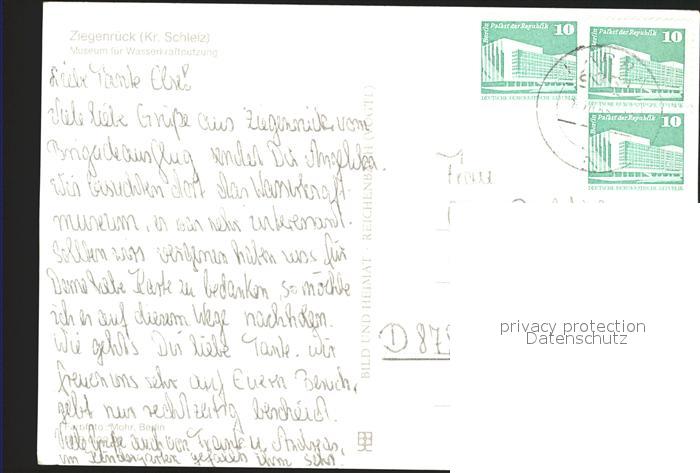 Ziegenrück (Kr. Schleiz)
Museum für Wasserkraftnutzung
Liebe Tante Else!
Viele liebe Grüße aus Ziegenrück, vom
Brigadeausflug sendet Dir Angelika.
Wir besuchten dort das Wasserkraft-
museum, es war sehr interessant.
Sollten wir vergessen haben uns für
Deine liebe Karte zu bedanken, so möchte
ich es auf diesem Wege nachholen.
Wie gehts Dir liebe Tante. Wir
freuen uns sehr auf Euern Besuch,
gebt nur rechtzeitig bescheid.
Mohr, Berlin
Viele Grüße auch von Frank u. Andreas,
im Kindergarten gefällts ihm sehr.
BILD UND HEIMAT REICHENBACH (VOGTL)
Berlin Palast der Republik 10
DEUTSCHE DEMOKRATISCHE REPUBLIK
Berlin Palast der Republik 10
DEUTSCHE DEMOKRATISCHE REPUBLIK
Berlin Palast der Republik 10
DEUTSCHE DEMOKRATISCHE REPUBLIK
Frau
D 87
privacy protection
Datenschutz